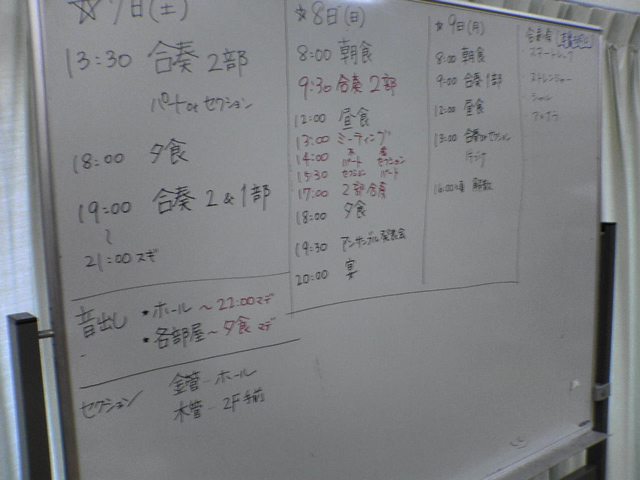 ☆7日(土)
13:30 合奏 2部
パート or セクション
18:00 夕食
19:00 合奏 2&1部
〜
21:00スギ
音出し ★ホール〜22:00マデ
★各部屋〜夕食マデ
セクション 金管-ホール
木管-2F手前
☆8日(日)
8:00 朝食
9:30 合奏 2部
12:00 昼食
13:00 ミーティング
14:00 パート セクション
15:30 セクション パート
17:00 2部合奏
18:00 夕食
19:30 アンサンブル発表会
20:00 宴
★9日(月)
8:00 朝食
9:00 合奏1部
12:00 昼食
13:00 合奏 or セクション
16:00頃 解散
合奏場